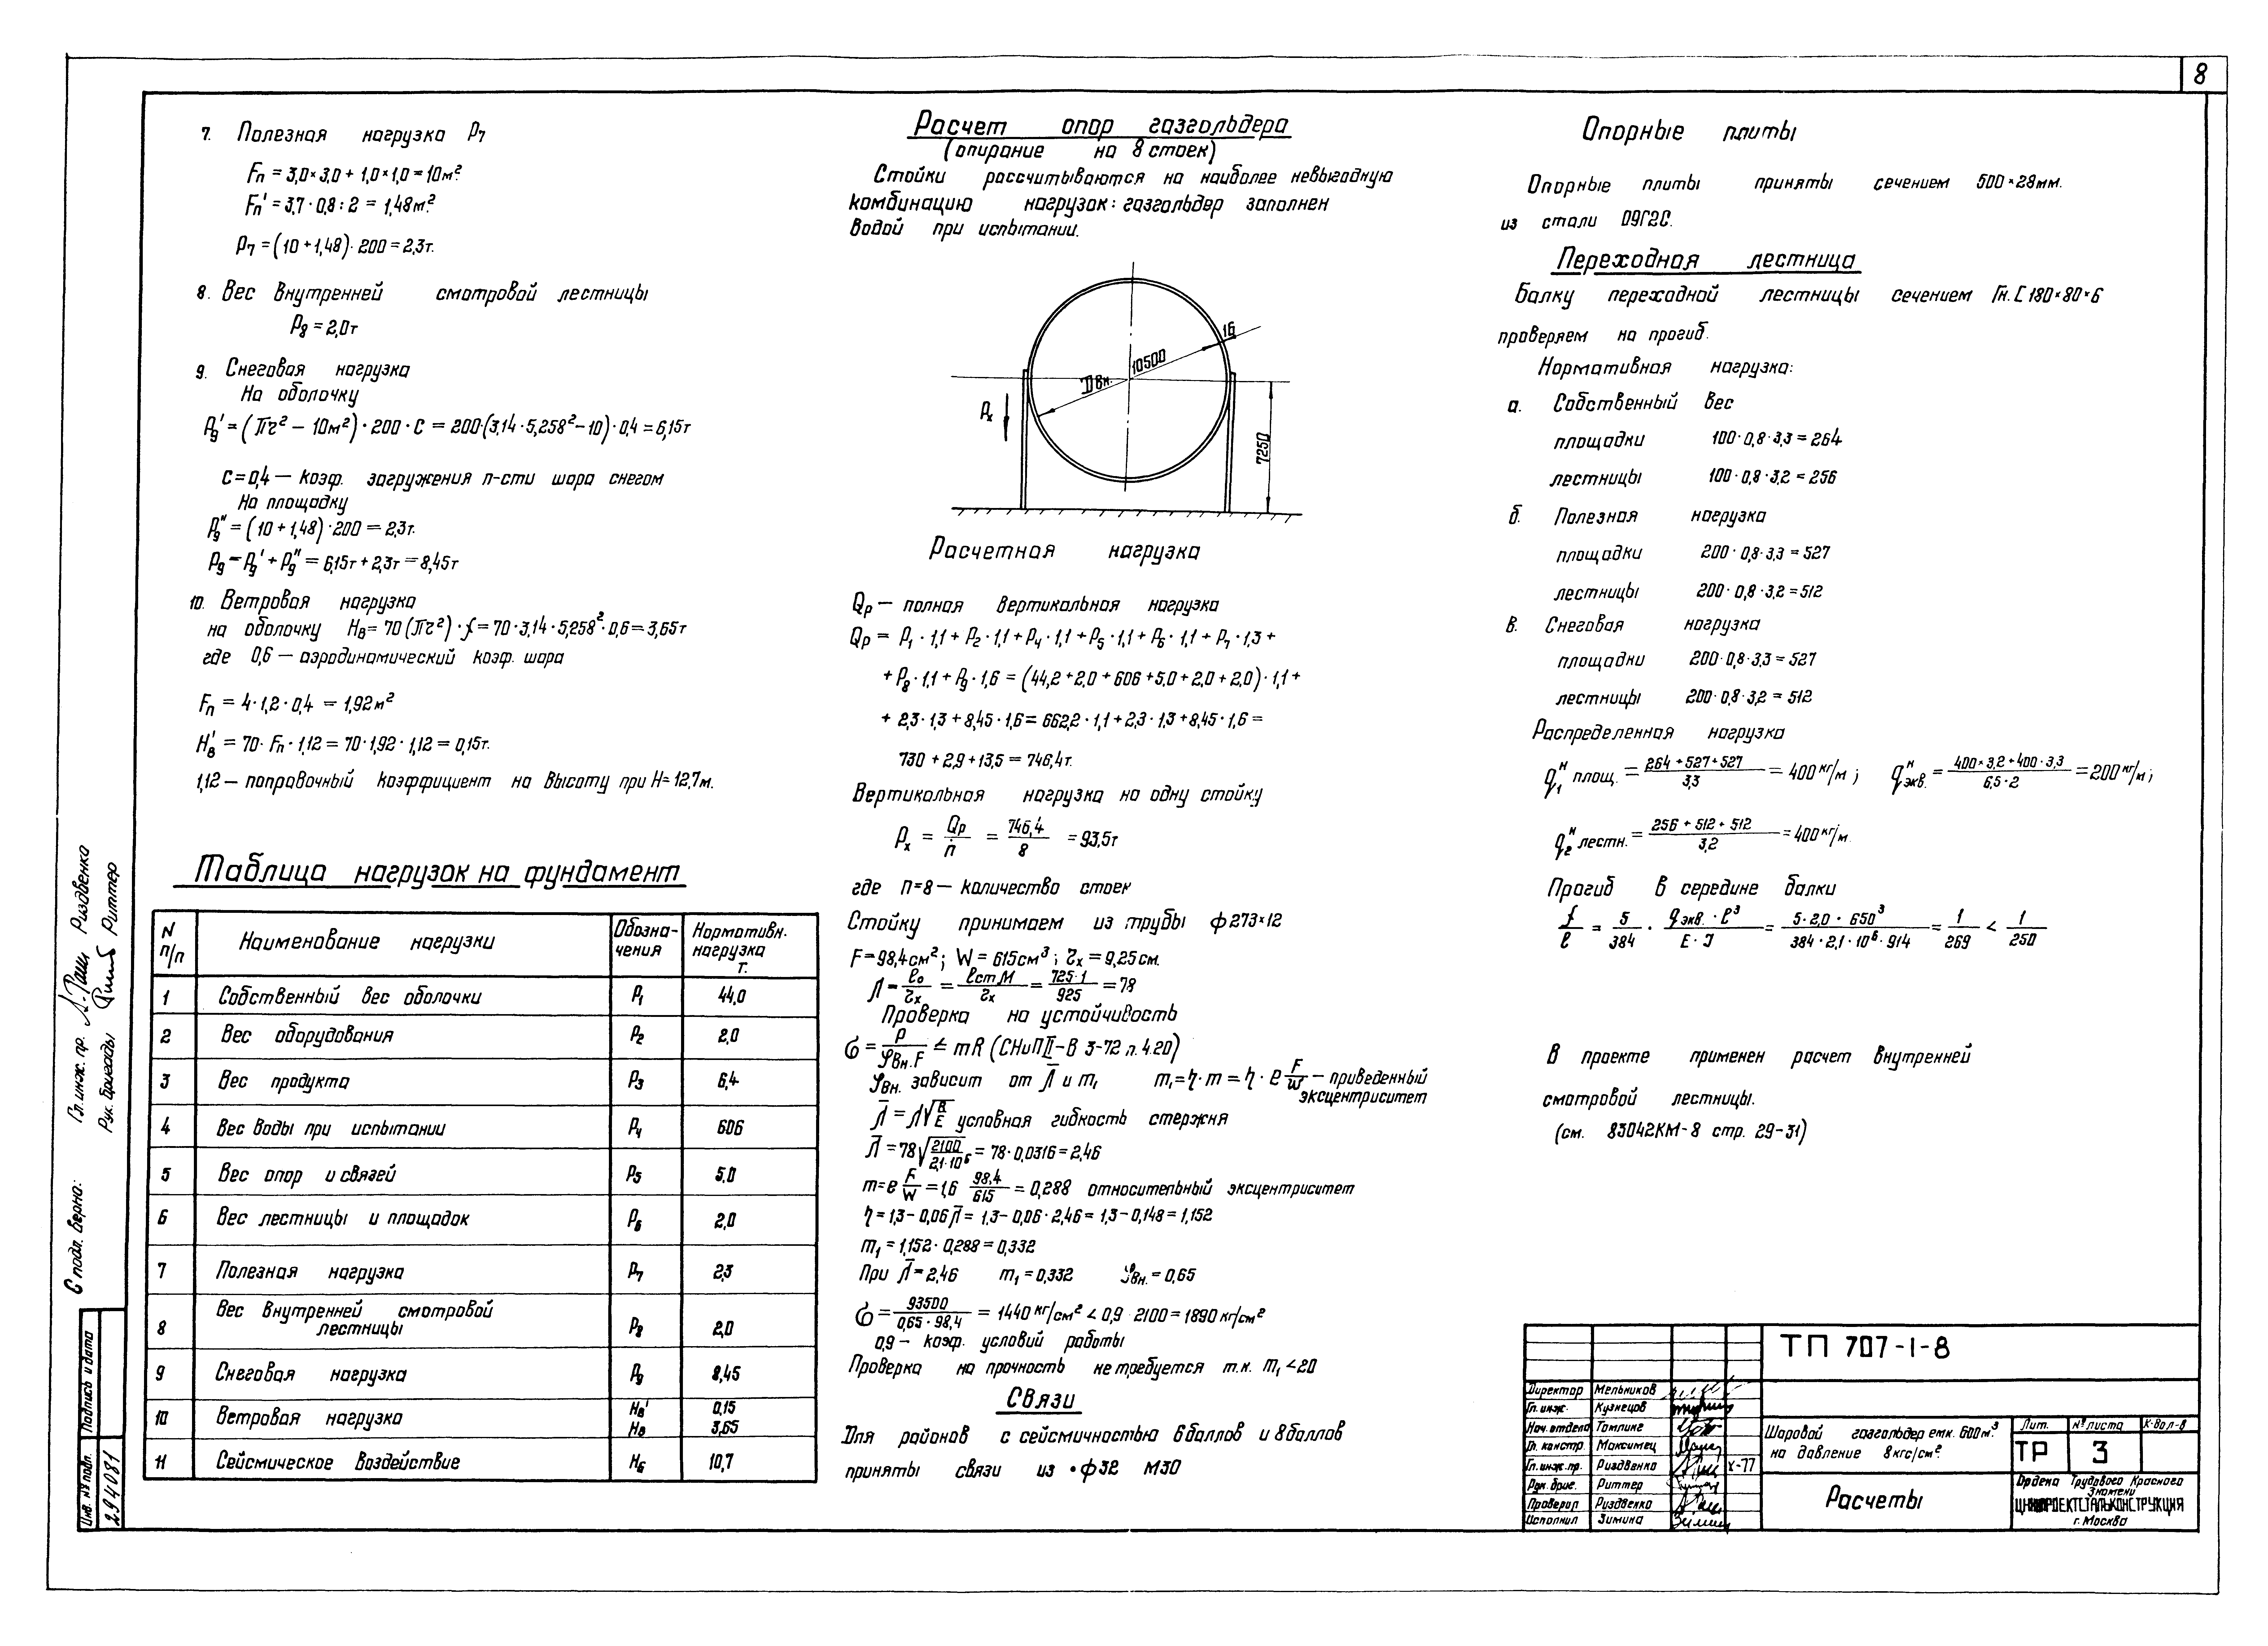 8
7. Полезная нагрузка P₇
Fп = 3,0×3,0 + 1,0×1,0 = 10м².
Fп' = 3,7·0,8:2 = 1,48м².
P₇ = (10+1,48)·200 = 2,3т.
8. Вес внутренней смотровой лестницы
P₈ = 2,0т
9. Снеговая нагрузка
На оболочку
P₉' = (πr² − 10м²)·200·C = 200·(3,14·5,258²−10)·0,4 = 6,15т
C = 0,4 — коэф. загружения п-сти шара снегом
На площадку
P₉" = (10+1,48)·200 = 2,3т.
P₉ = P₉' + P₉" = 6,15т + 2,3т = 8,45т
10. Ветровая нагрузка
на оболочку Hв = 70(πr²)·f = 70·3,14·5,258²·0,6 = 3,65т
где 0,6 — аэродинамический коэф. шара
Fп = 4·1,2·0,4 = 1,92м²
Hв' = 70·Fп·1,12 = 70·1,92·1,12 = 0,15т.
1,12 — поправочный коэффициент на высоту при H = 12,7м.
Таблица нагрузок на фундамент
N п/п Наименование нагрузки Обозна-чения Нормативн. нагрузка т.
1 Собственный вес оболочки P₁ 44,0
2 Вес оборудования P₂ 2,0
3 Вес продукта P₃ 6,4
4 Вес воды при испытании P₄ 606
5 Вес опор и связей P₅ 5,0
6 Вес лестницы и площадок P₆ 2,0
7 Полезная нагрузка P₇ 2,3
8 Вес внутренней смотровой лестницы P₈ 2,0
9 Снеговая нагрузка P₉ 8,45
10 Ветровая нагрузка Hв' 0,15
Hв 3,65
11 Сейсмическое воздействие H₆ 10,7
Расчет опор газгольдера
(опирание на 8 стоек)
Стойки рассчитываются на наиболее невыгодную
комбинацию нагрузок: газгольдер заполнен
водой при испытании.
16
Dвн. 10500
Pₓ
7250
Расчетная нагрузка
Qр — полная вертикальная нагрузка
Qр = P₁·1,1 + P₂·1,1 + P₄·1,1 + P₅·1,1 + P₆·1,1 + P₇·1,3 +
+ P₈·1,1 + P₉·1,6 = (44,2+2,0+606+5,0+2,0+2,0)·1,1 +
+ 2,3·1,3 + 8,45·1,6 = 662,2·1,1 + 2,3·1,3 + 8,45·1,6 =
730 + 2,9 + 13,5 = 746,4т.
Вертикальная нагрузка на одну стойку
Pₓ = Qр/п = 746,4/8 = 93,5т
где п=8 — количество стоек
Стойку принимаем из трубы ф273×12
F = 98,4см²; W = 615см³; rₓ = 9,25см.
λ = ℓ₀/rₓ = ℓст.М/rₓ = 725·1/925 = 78
Проверка на устойчивость
σ = P/φвн.F ≤ mR (СНиП II-В 3-72 п.4.20)
φвн. зависит от λ̄ и m₁ m₁ = η·m = η·e F/W — приведенный
эксцентриситет
λ̄ = λ√R/E условная гибкость стержня
λ̄ = 78√2100/2,1·10⁶ = 78·0,0316 = 2,46
m = e F/W = 1,6 98,4/615 = 0,288 относительный эксцентриситет
η = 1,3−0,06λ̄ = 1,3−0,06·2,46 = 1,3−0,148 = 1,152
m₁ = 1,152·0,288 = 0,332
При λ̄ = 2,46 m₁ = 0,332 φвн. = 0,65
σ = 93500/0,65·98,4 = 1440 кг/см² < 0,9·2100 = 1890 кг/см²
0,9 — коэф. условий работы
Проверка на прочность не требуется т.к. m₁ < 20
Связи
Для районов с сейсмичностью 6 баллов и 8 баллов
приняты связи из •ф32 М30
Опорные плиты
Опорные плиты приняты сечением 500×28мм.
из стали 09Г2С.
Переходная лестница
Балку переходной лестницы сечением Гн.[180×80×6
проверяем на прогиб.
Нормативная нагрузка:
а. Собственный вес
площадки 100·0,8·3,3 = 264
лестницы 100·0,8·3,2 = 256
б. Полезная нагрузка
площадки 200·0,8·3,3 = 527
лестницы 200·0,8·3,2 = 512
в. Снеговая нагрузка
площадки 200·0,8·3,3 = 527
лестницы 200·0,8·3,2 = 512
Распределенная нагрузка
q₁ᴴ площ. = 264+527+527/3,3 = 400 кг/м; qᴴэкв. = 400×3,2+400·3,3/6,5·2 = 200 кг/м;
q₂ᴴ лестн. = 256+512+512/3,2 = 400 кг/м.
Прогиб в середине балки
f/ℓ = 5/384 · qэкв.·ℓ³/E·J = 5·2,0·650³/384·2,1·10⁶·914 = 1/269 < 1/250
В проекте применен расчет внутренней
смотровой лестницы.
(см. 83042КМ-8 стр. 29-31)
ТП 707-1-8
Директор Мельников
Гл. инж. Кузнецов
Нач. отдела Томлинг
Гл. констр. Максимец
Гл. инж. пр. Риздвенко X-77
Рук. бриг. Риттер
Проверил Риздвенко
Исполнил Зимина
Шаровой газгольдер емк. 600м³.
на давление 8кгс/см².
Расчеты
Лит. № листа К-во л-в
ТР 3
Ордена Трудового Красного
Знамени
ЦНИИПРОЕКТСТАЛЬКОНСТРУКЦИЯ
г. Москва
С подл. верно: Гл. инж. пр. Риздвенко
Рук. бригады Риттер
Подпись и дата
Инв. № подл. 294081